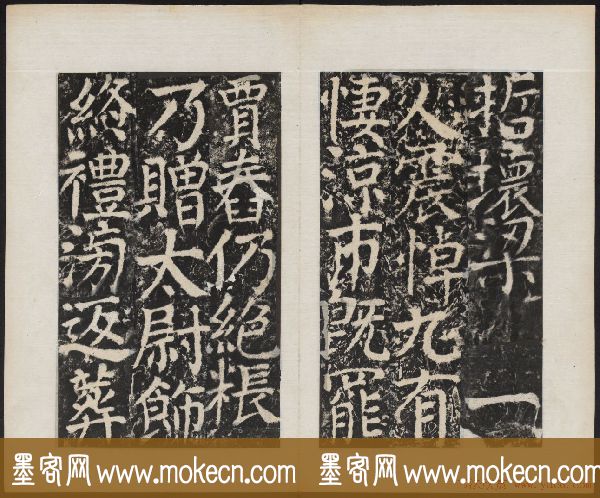 哲壞梁 一
人震悼九有
悽涼市既罷
賈舂仍絕
乃贈太尉飾
終禮洊返葬
墨客网 www.mokecn.com
墨客网 www.mokecn.com